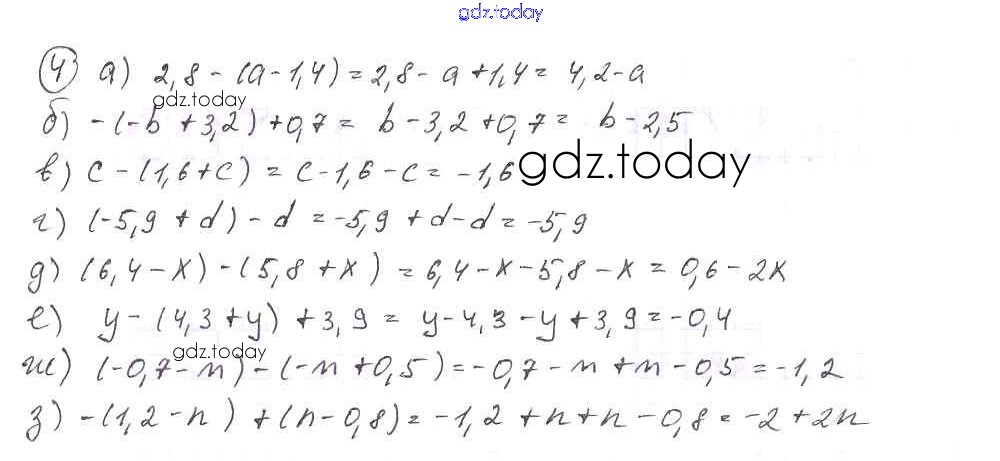 gdz.today
4 а) 2,8 - (a - 1,4) = 2,8 - a + 1,4 = 4,2 - a
gdz.today
б) - (-b + 3,2) + 0,7 = b - 3,2 + 0,7 = b - 2,5
в) c - (1,6 + c) = c - 1,6 - c = -1,6
gdz.today
г) (-5,9 + d) - d = -5,9 + d - d = -5,9
д) (6,4 - x) - (5,8 + x) = 6,4 - x - 5,8 - x = 0,6 - 2x
е) y - (4,3 + y) + 3,9 = y - 4,3 - y + 3,9 = -0,4
gdz.today
ж) (-0,7 - m) - (-m + 0,5) = -0,7 - m + m - 0,5 = -1,2
з) - (1,2 - n) + (n - 0,8) = -1,2 + n + n - 0,8 = -2 + 2n